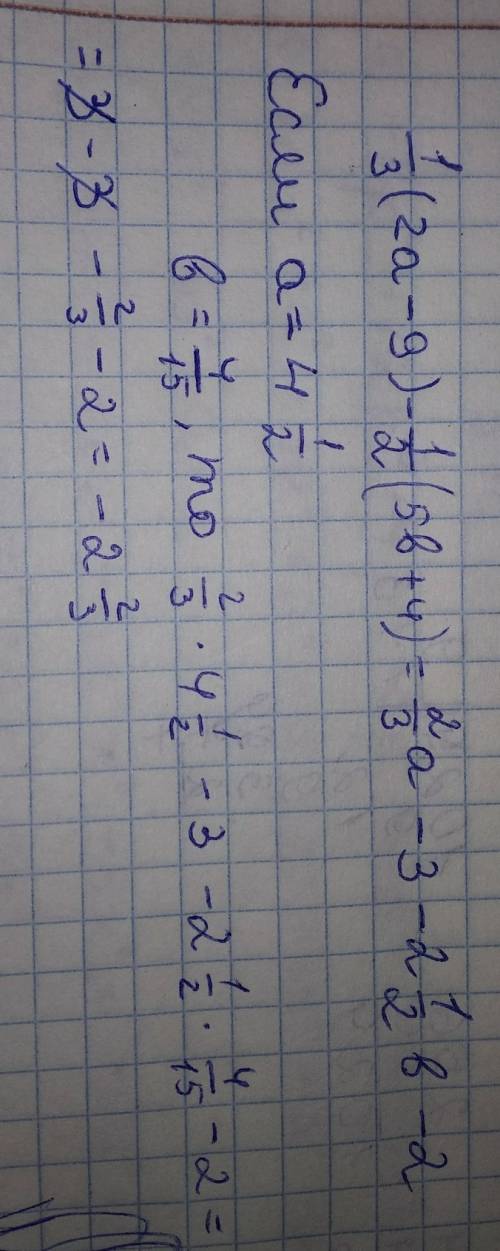 1/3(2a - 9) - 1/2(5b + 4) = 2/3 a - 3 - 2 1/2 b - 2
Если a = 4 1/2
b = 4/15, то 2/3 · 4 1/2 - 3 - 2 1/2 · 4/15 - 2 =
= 3 - 3 - 2/3 - 2 = - 2 2/3